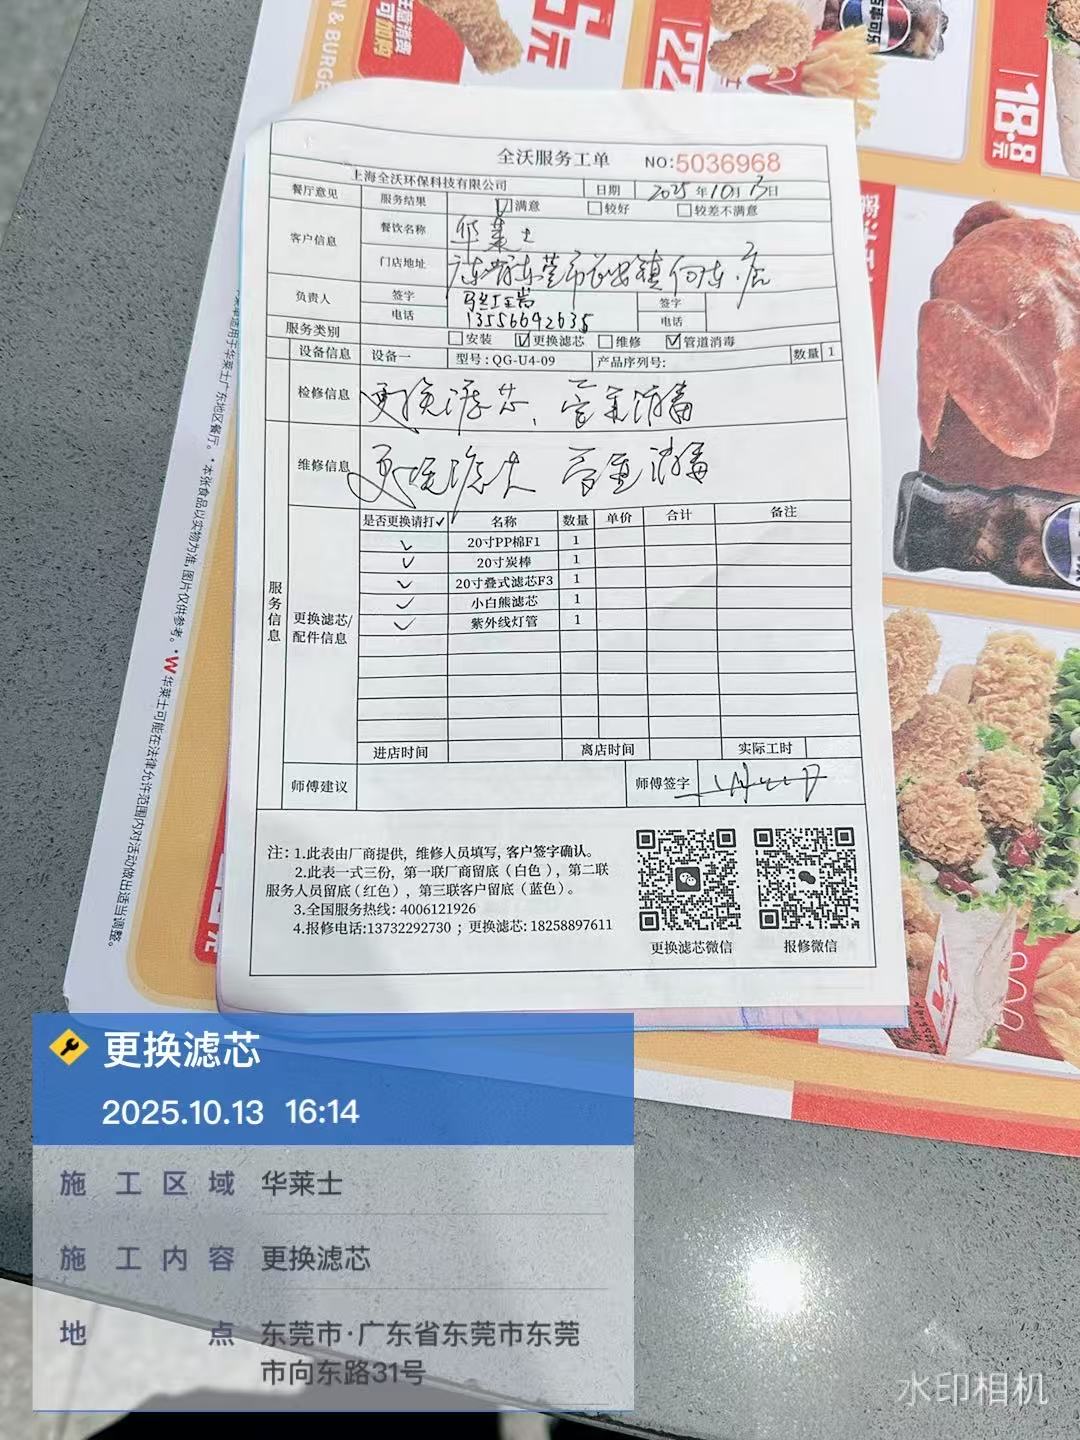 5元
22
18.8元
全沃服务工单 NO:5036968
上海全沃环保科技有限公司 日期 2025年10月13日
餐厅意见 服务结果 ☑满意 □较好 □较差不满意
客户信息 餐饮名称 华莱士
门店地址 广东省东莞市长安镇向东店
负责人 签字 签字
电话 13556642635 电话
服务类别 □安装 ☑更换滤芯 □维修 ☑管道消毒
设备信息 设备一 型号:QG-U4-09 产品序列号: 数量 1
检修信息 更换滤芯、管道消毒
维修信息 更换滤芯 管道消毒
服务信息
更换滤芯/配件信息
是否更换请打✓ 名称 数量 单价 合计 备注
✓ 20寸PP棉F1 1
✓ 20寸炭棒 1
✓ 20寸叠式滤芯F3 1
✓ 小白熊滤芯 1
✓ 紫外线灯管 1
进店时间 离店时间 实际工时
师傅建议 师傅签字
注: 1.此表由厂商提供, 维修人员填写, 客户签字确认。
2.此表一式三份, 第一联厂商留底(白色), 第二联
服务人员留底(红色), 第三联客户留底(蓝色)。
3.全国服务热线: 4006121926
4.报修电话:13732292730 ; 更换滤芯: 18258897611
更换滤芯微信 报修微信
华莱士可能在法律允许范围内对活动做出适当调整。
•本张食品以实物为准,图片仅供参考。
更换滤芯
2025.10.13 16:14
施工区域 华莱士
施工内容 更换滤芯
地点 东莞市·广东省东莞市东莞
市向东路31号
水印相机